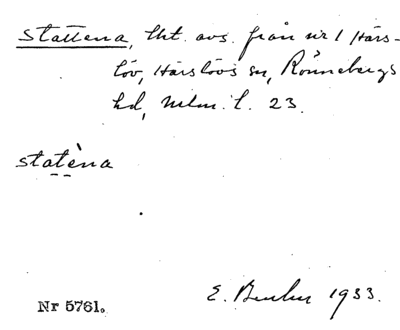 Stattena, lht. avs. från nr 1 Härs-
löv, Härslövs sn, Rönnebergs
hd, Mlm. l. 23.
statèna
Nr 5761. E. 1933.